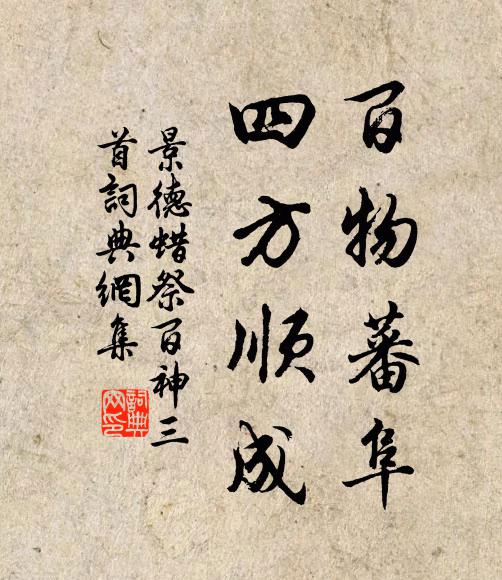 百物蕃阜
四方順成
景德蜡祭百神三
首詞典網集
詞典
网印